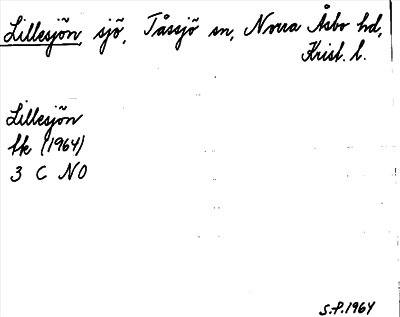 Lillesjön, sjö, Tåssjö sn, Norra Åsbo hd,
Krist. l.
Lillesjön
fk (1964)
3 C NO
S.P. 1964